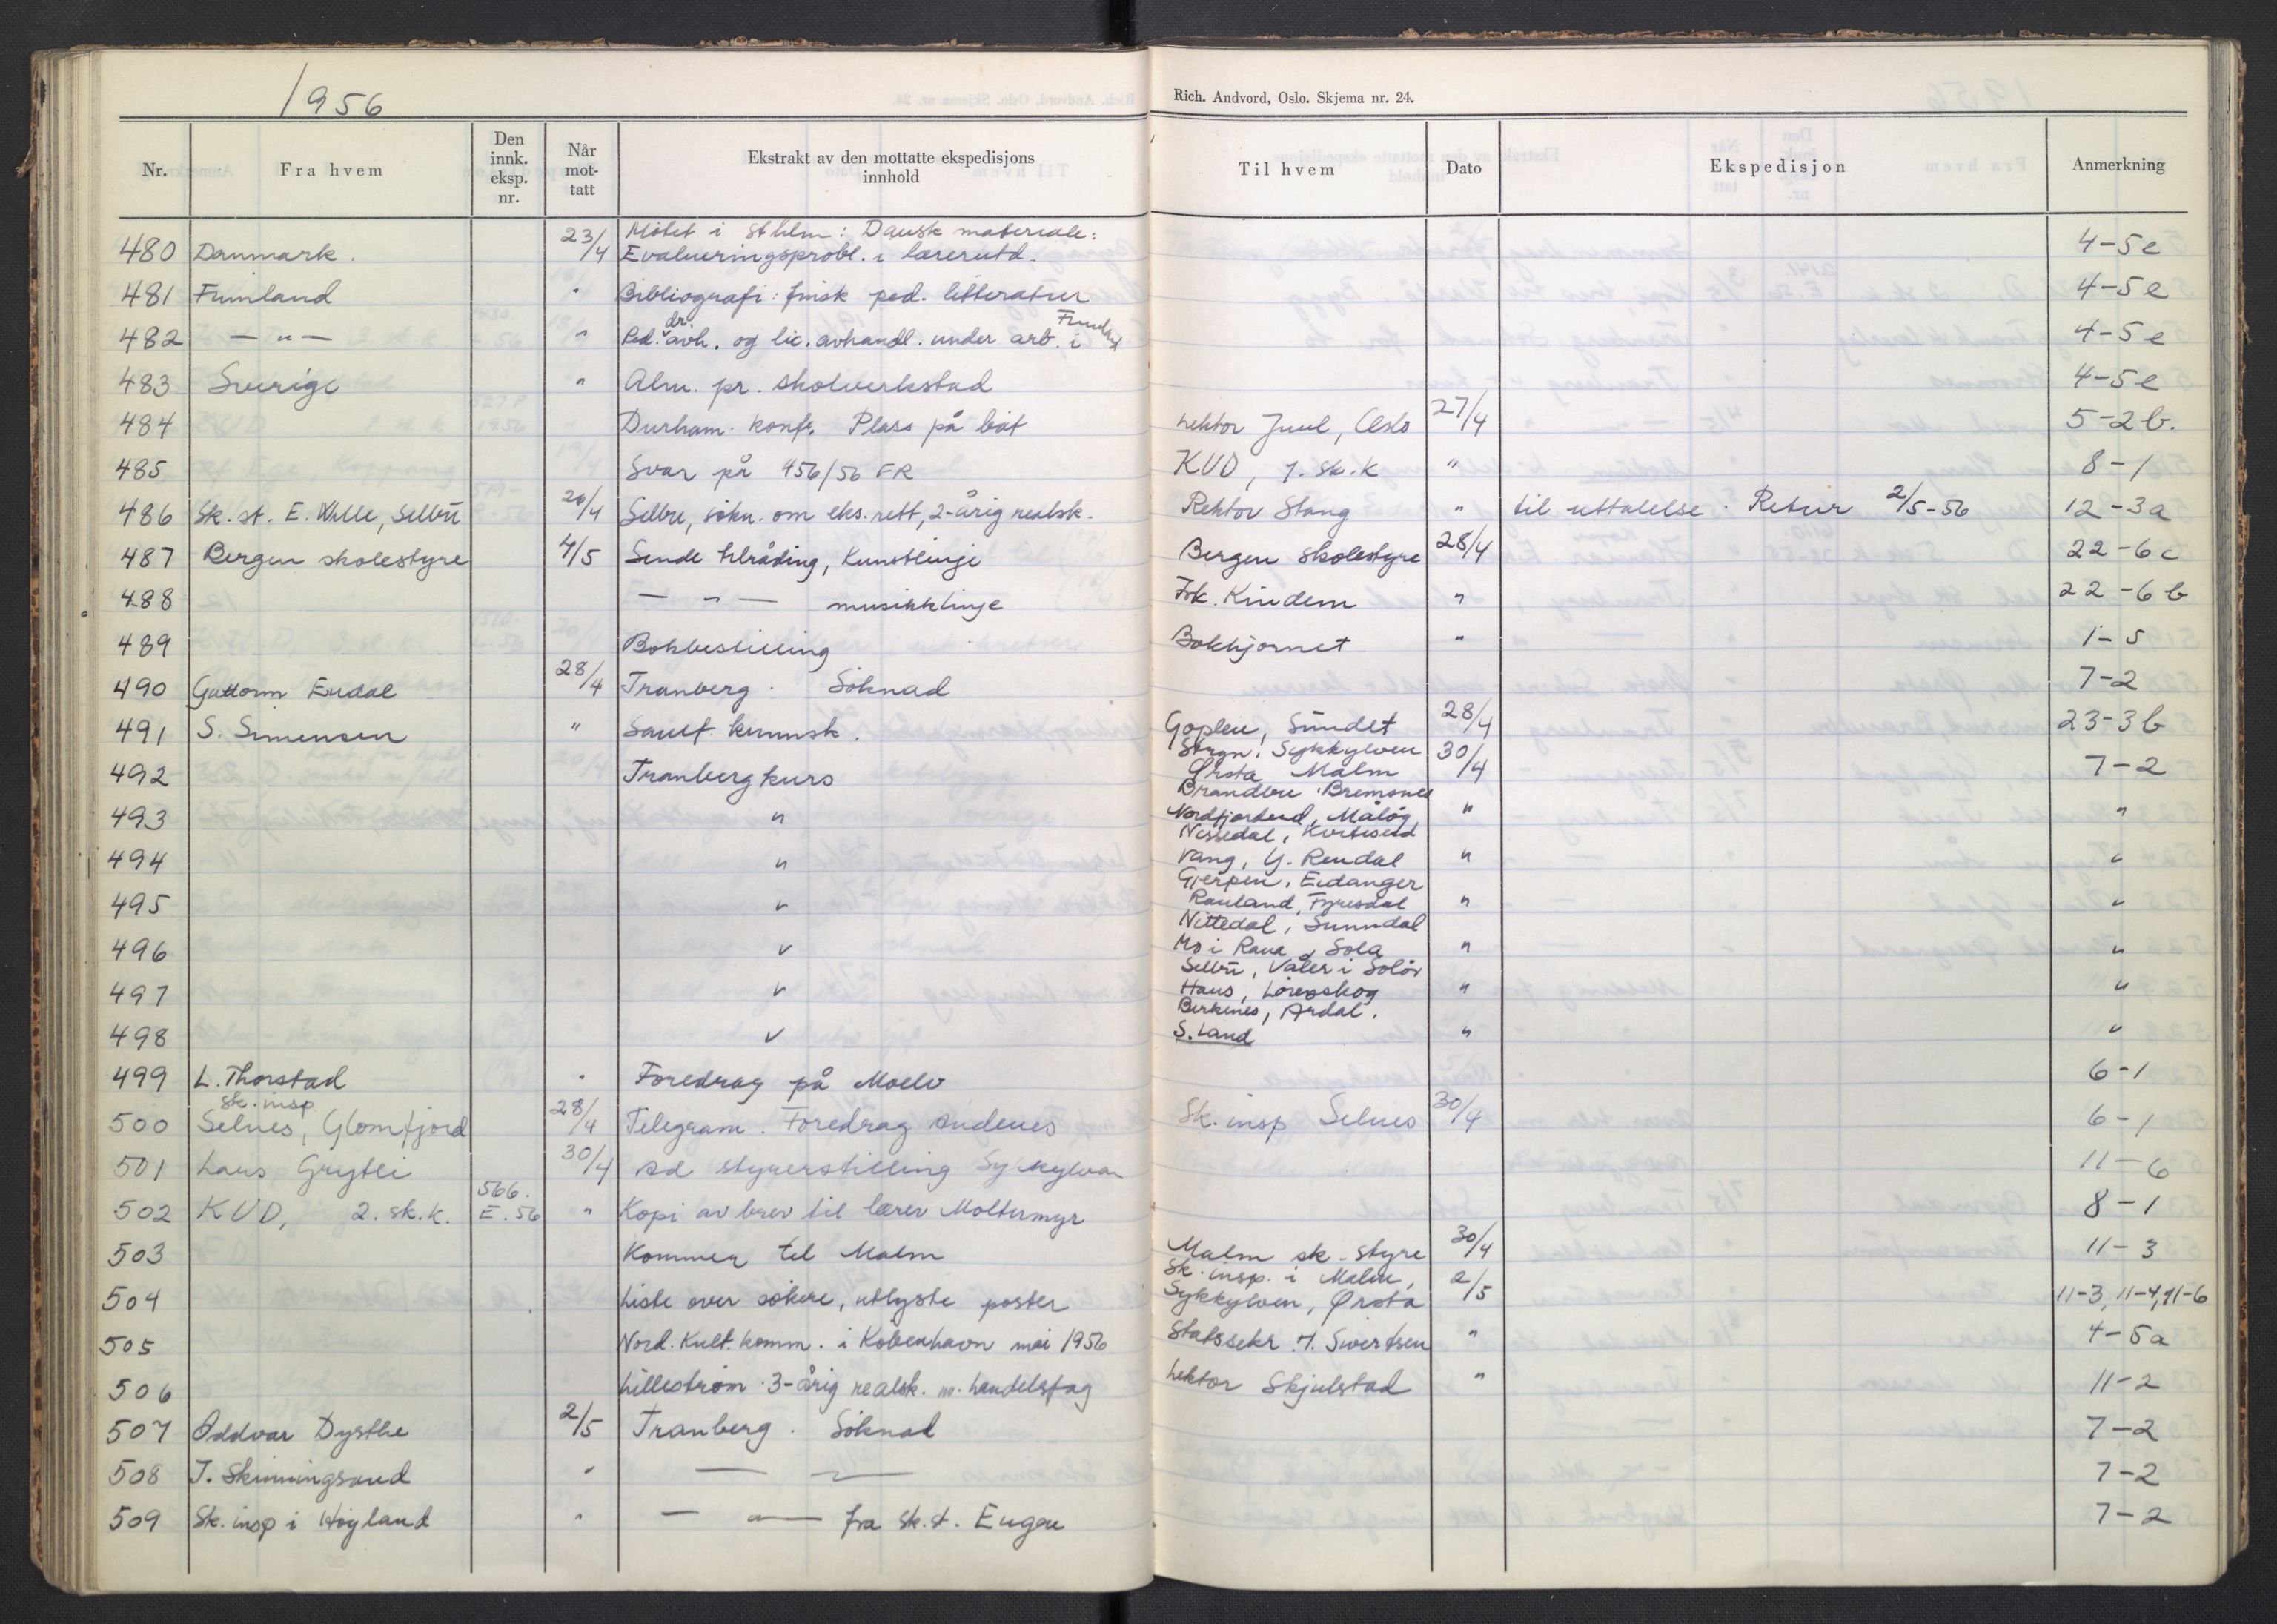 1956
Rich. Andvord, Oslo. Skjema nr. 24.
Nr. Fra hvem Den innk. eksp. nr. Når mot-tatt Ekstrakt av den mottatte ekspedisjons innhold Til hvem Dato Ekspedisjon Anmerkning
480 Danmark. 23/4 Møtet i Sthlm: Dansk materiale: Evalueringsprobl. i lærerutd. 4-5e
481 Finnland " Bibliografi: finsk ped. litteratur 4-5e
482 — " — " Ped. dr. avh. og lic. avhandl. under arb. i Finnland 4-5e
483 Sverige " Alm. pr. skolverkstad 4-5e
484 Durham-konf. Plass på båt Lektor Juul, Oslo 27/4 5-2b.
485 Svar på 456/56 FR KUD, 1. sk.k " 8-1
486 Sk.st. E. Wille, Selbu 26/4 Selbu, søkn. om eks.rett, 2-årig realsk. Rektor Stang " til uttalelse. Retur 2/5-56 12-3a
487 Bergen skolestyre 4/5 Sende tilråding, Kunstlinje Bergen skolestyre 28/4 22-6c
488 — " — musikklinje Frk. Kindem " 22-6b
489 Bokbestilling Bokhjørnet " 1-5
490 Guttorm Eidal 28/4 Tranberg. Søknad 7-2
491 S. Simensen " Samf. kunnsk. Goplen, Sundet 28/4 23-3b
492 Tranbergkurs Sørgn, Sykkylven Ørsta Malm 30/4 7-2
493 " Brandbu, Bremsnes Nordfjordeid, Måløy " "
494 " Nissedal, Kviteseid Vang, Y. Rendal " "
495 " Gjerpen, Eidanger Rauland, Fyresdal " "
496 " Nittedal, Sunndal Mo i Rana, Sola " "
497 " Selbu, Våler i Solør Haus, Lørenskog " "
498 " Birkenes, Årdal. S. Land " "
499 L. Thorstad " Foredrag på Moelv 6-1
500 Sk.insp Selnes, Glomfjord 28/4 Telegram. Foredrag Andenes Sk.insp Selnes 30/4 6-1
501 Lars Grytli 30/4 ad styrerstilling Sykkylven 11-6
502 KUD, 2. sk.k. 566. E. 56 " Kopi av brev til lærer Moltumyr 8-1
503 Kommer til Malm Malm sk.styre 30/4 11-3
504 Liste over søkere, utlyste poster Sk.insp. i Malm, Sykkylven, Ørsta 2/5 11-3, 11-4, 11-6
505 Nord. Kult. komm. i København mai 1956 Statssekr. H. Sivertsen " 4-5a
506 Lillestrøm. 3-årig realsk. m. handelsfag Lektor Skjulstad " 11-2
507 Oddvar Dysthe 2/5 Tranberg. Søknad 7-2
508 J. Skinningsrud " — " — 7-2
509 Sk.insp i Høyland " — " — fra sk.st. Eugen 7-2